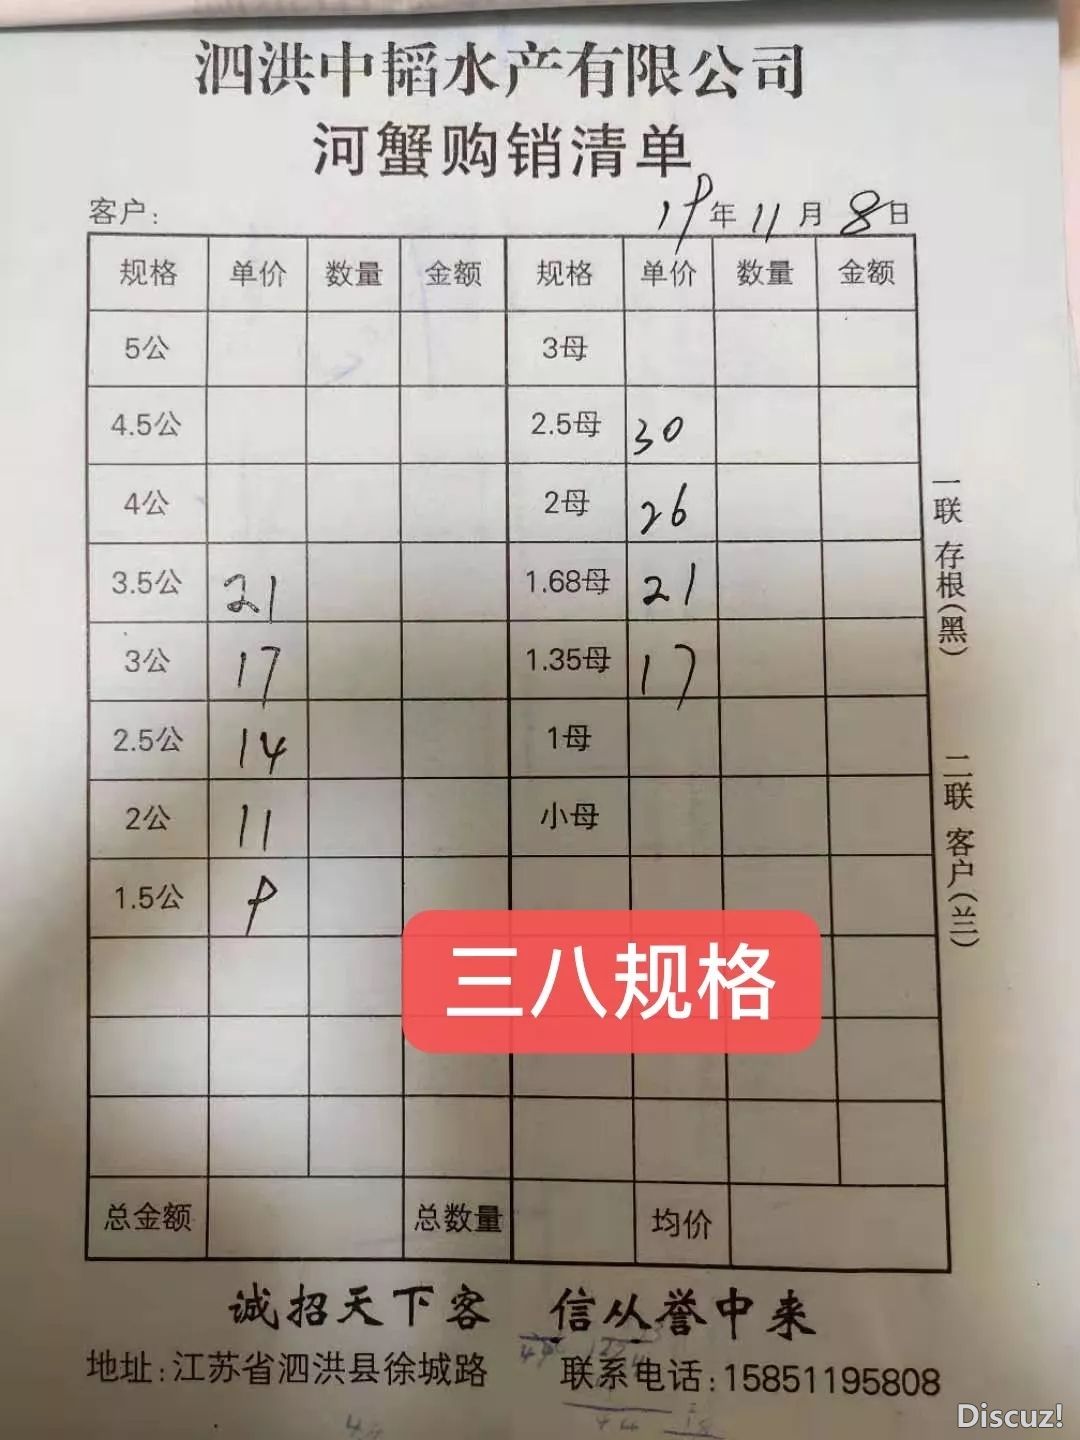 泗洪中韬水产有限公司
河蟹购销清单
客户: 19年11月8日
规格 单价 数量 金额 规格 单价 数量 金额
5公 3母
4.5公 2.5母 30
4公 2母 26
3.5公 21 1.68母 21
3公 17 1.35母 17
2.5公 14 1母
2公 11 小母
1.5公 9
三八规格
总金额 总数量 均价
一联 存根(黑)
二联 客户(兰)
诚招天下客 信从誉中来
地址:江苏省泗洪县徐城路 联系电话:15851195808
Discuz!